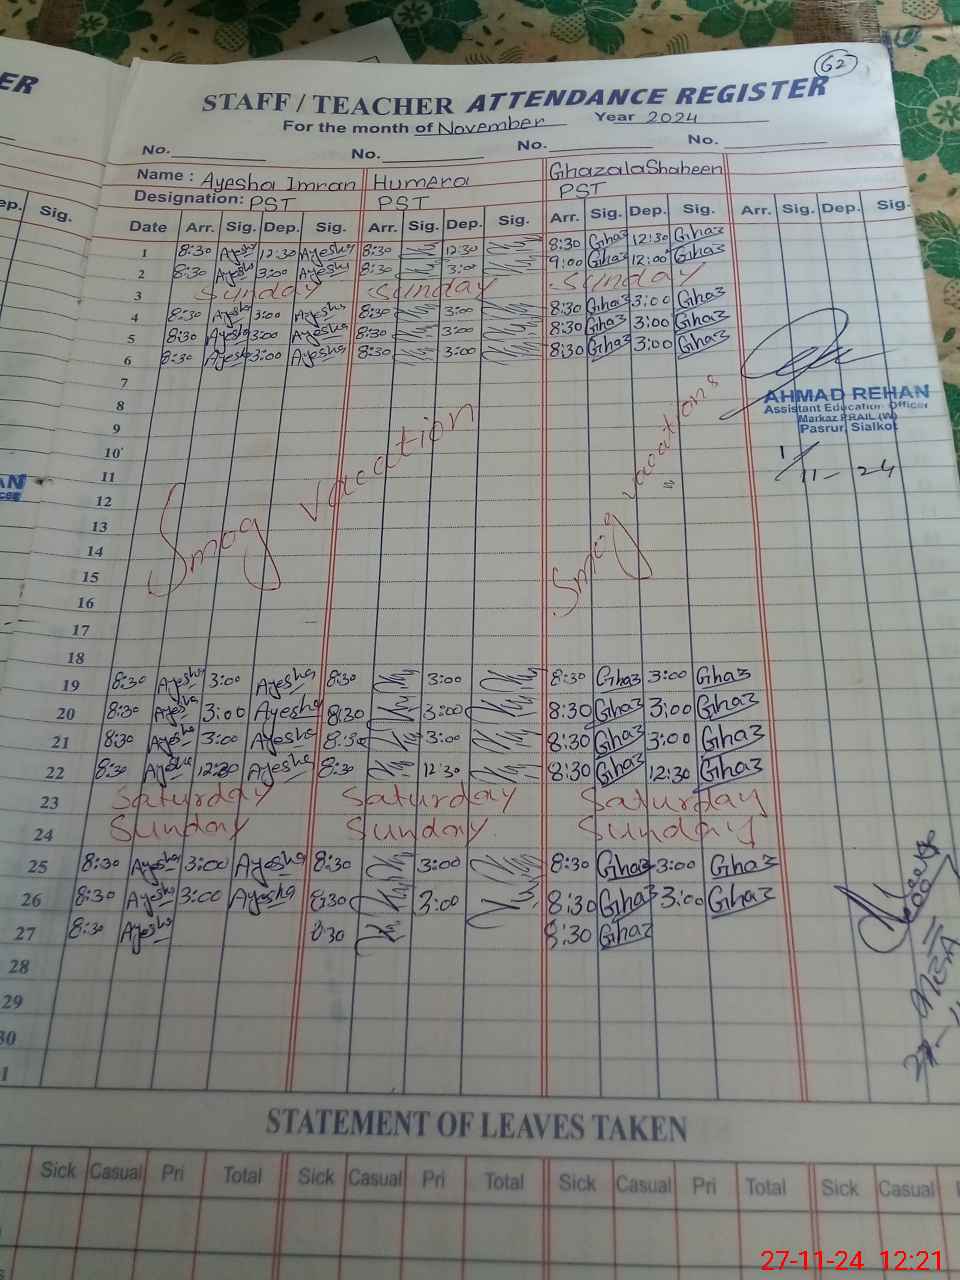 62
ER
STAFF / TEACHER ATTENDANCE REGISTER
For the month of November Year 2024
No. No. No. No.
Name : Ayesha Imran Humera Ghazala Shaheen
Designation: PST PST PST
ep. Sig. Date Arr. Sig. Dep. Sig. Arr. Sig. Dep. Sig. Arr. Sig. Dep. Sig. Arr. Sig. Dep. Sig.
1 8:30 Ayesha 12:30 Ayesha 8:30 12:30 8:30 Ghaz 12:30 Ghaz
2 8:30 Ayesha 3:00 Ayesha 8:30 3:00 9:00 Ghaz 12:00 Ghaz
3 Sunday Sunday Sunday
4 8:30 Ayesha 3:00 Ayesha 8:30 3:00 8:30 Ghaz 3:00 Ghaz
5 8:30 Ayesha 3:00 Ayesha 8:30 3:00 8:30 Ghaz 3:00 Ghaz
6 8:30 Ayesha 3:00 Ayesha 8:30 3:00 8:30 Ghaz 3:00 Ghaz
7
8
9
10
11
12
13
14
15
16
17
18
Smog vacation
Smog vacations
AHMAD REHAN
Assistant Education Officer
Markaz PRAIL (W)
Pasrur, Sialkot
1/11-24
AN
19 8:30 Ayesha 3:00 Ayesha 8:30 3:00 8:30 Ghaz 3:00 Ghaz
20 8:30 Ayesha 3:00 Ayesha 8:30 3:00 8:30 Ghaz 3:00 Ghaz
21 8:30 Ayesha 3:00 Ayesha 8:30 3:00 8:30 Ghaz 3:00 Ghaz
22 8:30 Ayesha 12:30 Ayesha 8:30 12:30 8:30 Ghaz 12:30 Ghaz
23 Saturday Saturday Saturday
24 Sunday Sunday Sunday
25 8:30 Ayesha 3:00 Ayesha 8:30 3:00 8:30 Ghaz 3:00 Ghaz
26 8:30 Ayesha 3:00 Ayesha 8:30 3:00 8:30 Ghaz 3:00 Ghaz
27 8:30 Ayesha 8:30 8:30 Ghaz
28
29
30
1
STATEMENT OF LEAVES TAKEN
Sick Casual Pri Total Sick Casual Pri Total Sick Casual Pri Total Sick Casual
27-11-24 12:21